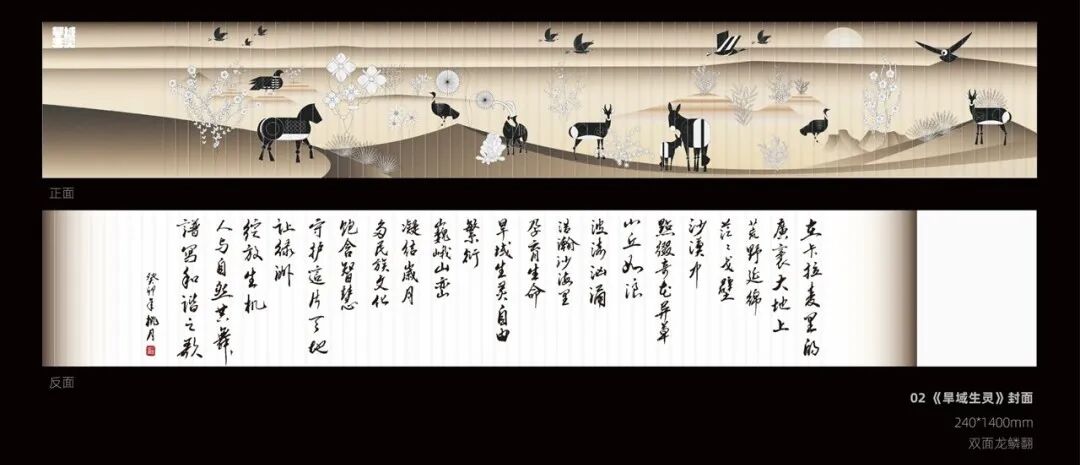 旱域
生灵
正面
在卡拉麦里的
廣袤大地上
荒野延绵
茫々戈壁
沙漠中
點缀奇花异草
山丘如浪
波涛汹涌
浩瀚沙海里
孕育生命
旱域生灵自由
繁衍
巍峨山峦
凝结岁月
多民族文化
饱含智慧
守护這片天地
让绿洲
绽放生机
人与自然共舞
谱写和谐之歌
癸卯年桃月
反面
02《旱域生灵》封面
240*1400mm
双面龙鳞翻